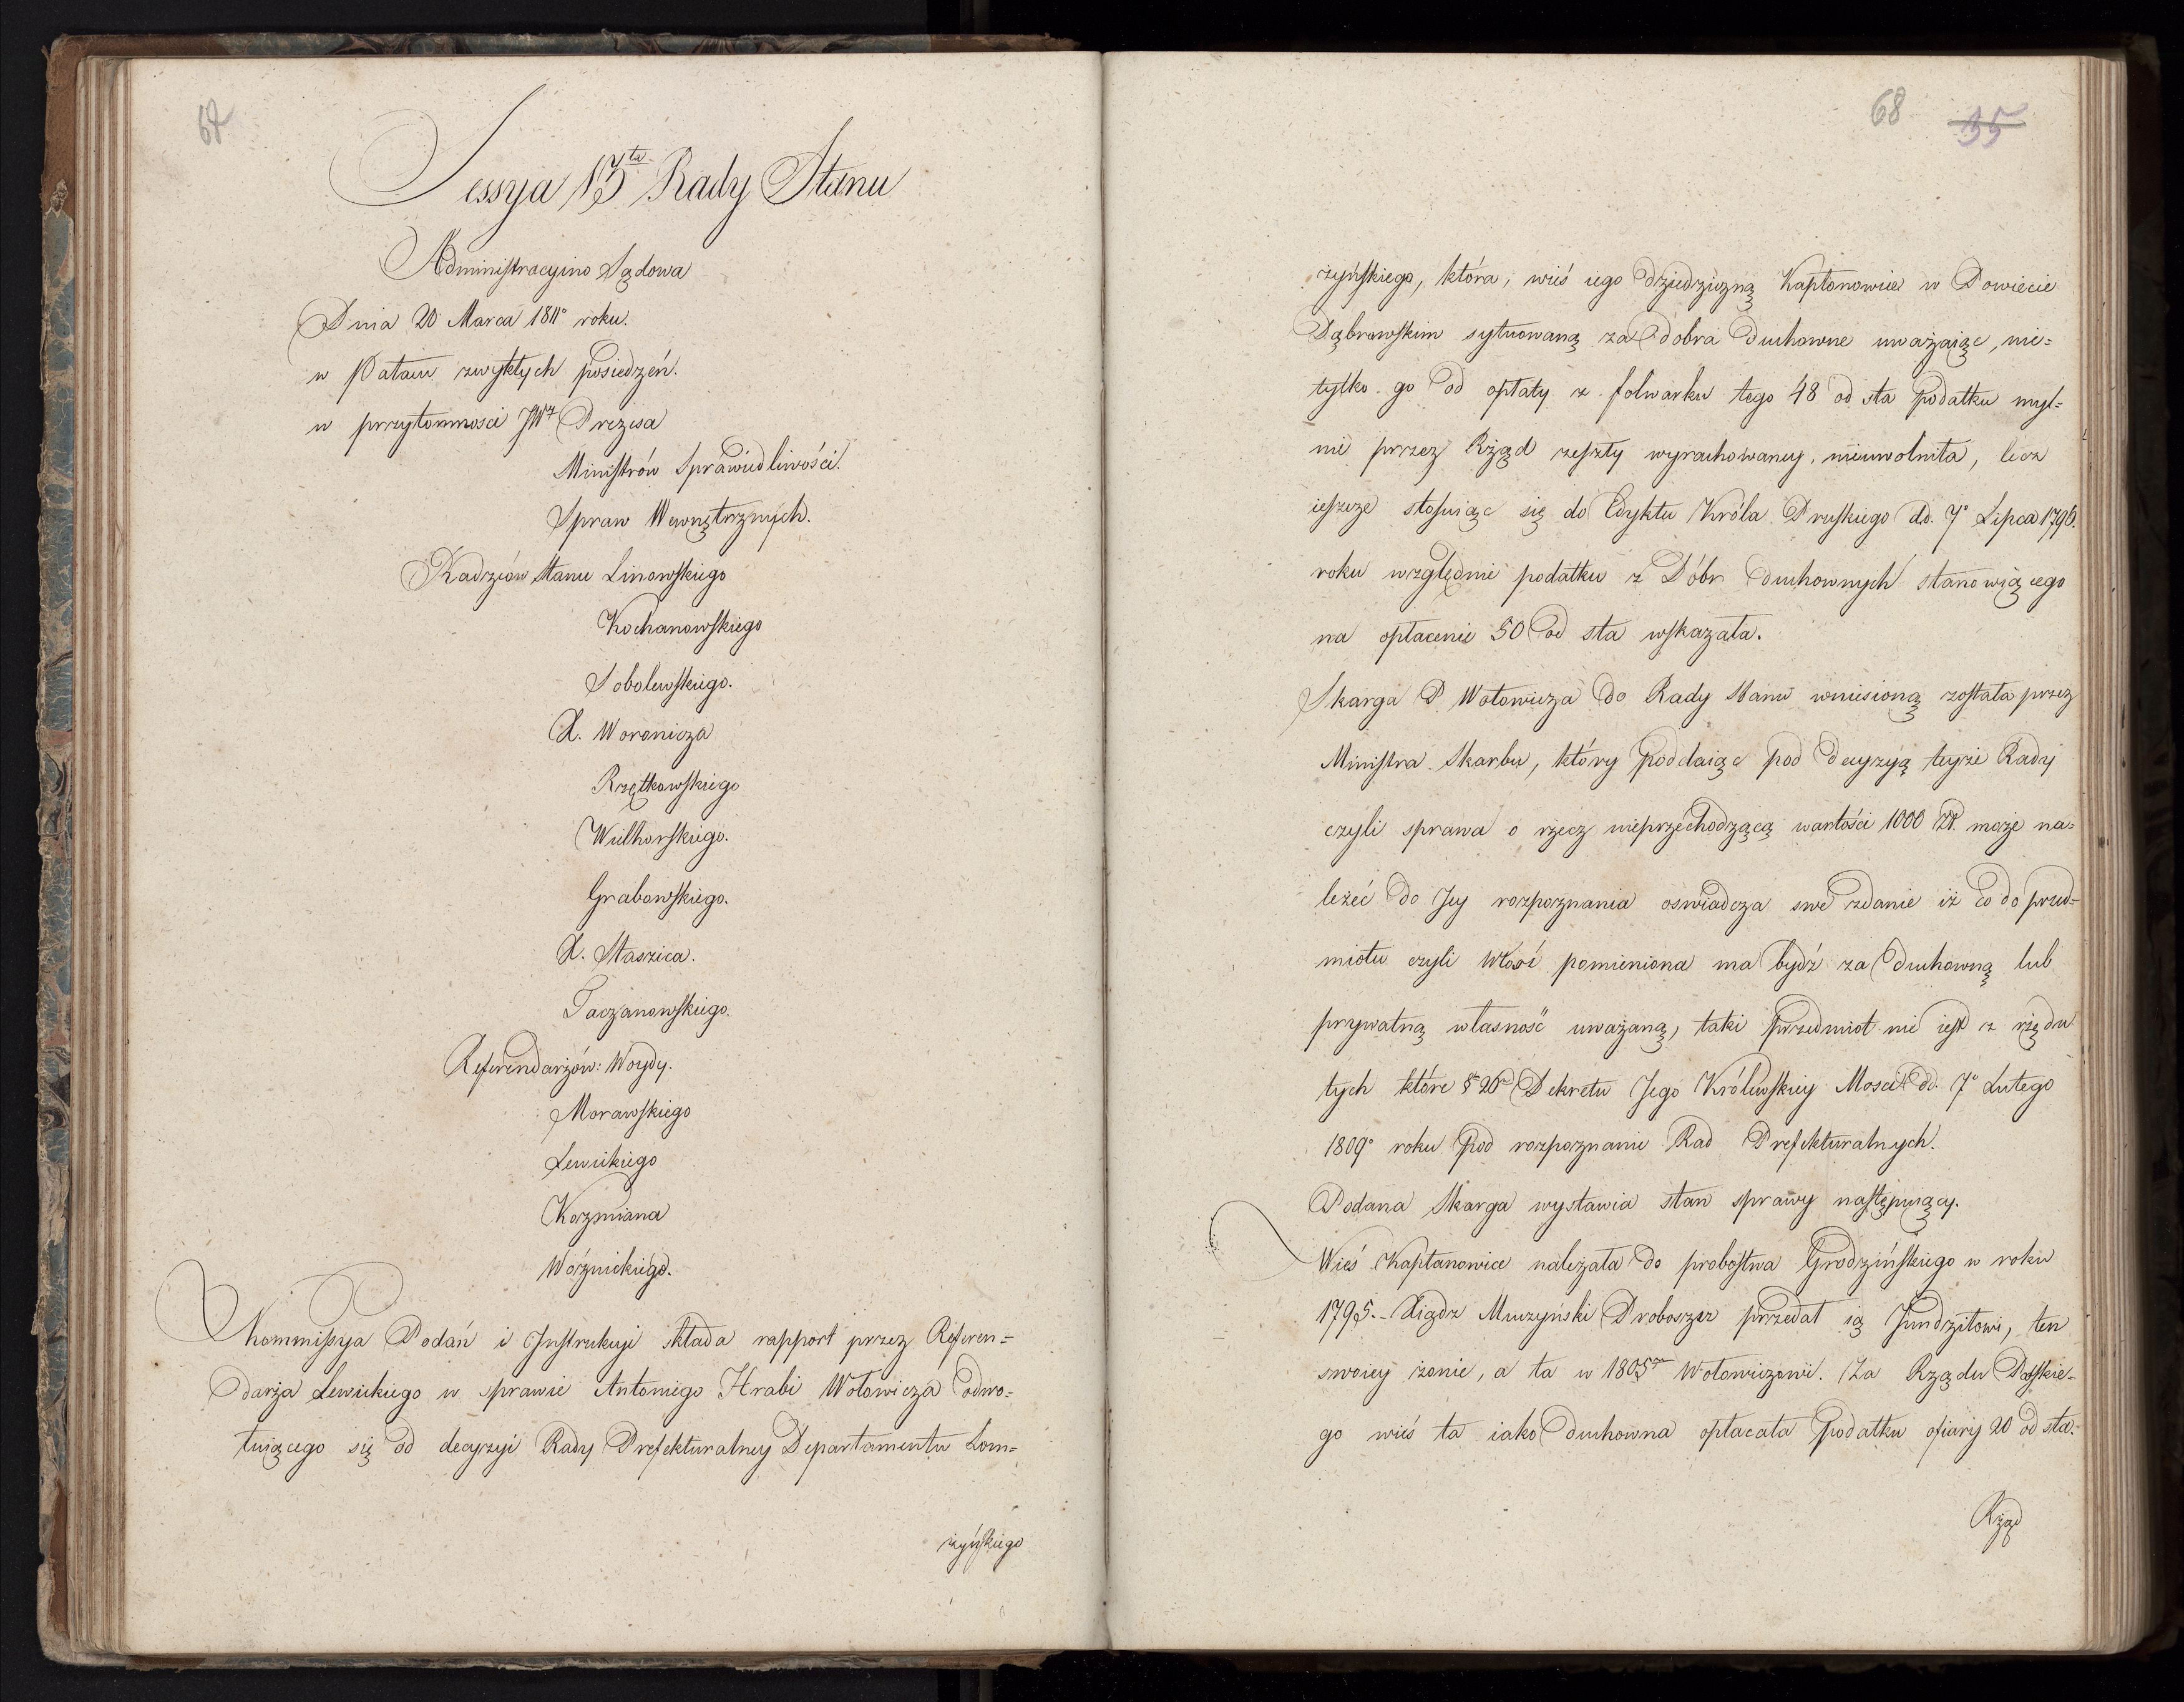 67
Sessya 13ta Rady Stanu
Administracyino Sądowa
Dnia 20 Marca 1811° roku.
w Pałacu zwykłych posiedzeń.
w przytomności JWo Prezesa
Ministrów Sprawiedliwości.
Spraw Wewnętrznych.
Radzców Stanu Linowskiego
Kochanowskiego
Sobolewskiego.
X. Woronicza
Rzętkowskiego
Wielhorskiego.
Grabowskiego.
X. Staszica.
Taczanowskiego.
Referendarzów: Woydy.
Morawskiego
Lewickiego
Kozmiana
Woźnickiego.
Kommissya Podań i Instrukcyi składa rapport przez Referen=
darza Lewickiego w sprawie Antoniego Hrabi Wołowicza odwo=
łuiącego się od decyzyi Rady Prefekturalney Departamentu Łom=
żyńskiego
68 35
żyńskiego, która, wieś iego dziedziczną Kapłanowice w Powiecie
Dąbrowskim sytuowaną za dobra duchowne uważaiąc, nie=
tylko go od opłaty z folwarku tego 48 od sta podatku myl=
nie przez Rząd zeszły wyrachowaney, nieuwolniła, lecz
ieszcze stosuiąc się do Edyktu Króla Pruskiego dd. 7° Lipca 1796.
roku względnie podatku z Dóbr duchownych stanowiącego
na opłacenie 50 od sta wskazała.
Skarga P. Wołowicza do Rady Stanu wniesioną została przez
Ministra Skarbu, który poddaiąc pod decyzyą teyże Rady
czyli sprawa o rzecz nieprzechodzącą wartości 1000 Zł. może na=
leżeć do Jey rozpoznania oswiadcza swe zdanie iż co do przed=
miotu czyli Włość pomieniona ma bydź za duchowną lub
prywatną własność uważaną, taki przedmiot nie iest z rzędu
tych które § 20 Dekretu Jego Królewskiey Mosci dd. 7° Lutego
1809° roku pod rozpoznanie Rad Prefekturalnych.
Podana Skarga wystawia stan sprawy następuiący.
Wieś Kapłanowice należała do probostwa Grodzińskiego w roku
1795.- Xiądz Muczyński Proboszcz przedał ią Jundziłowi, ten
swoiey żonie, a ta w 1805m Wołowiczowi. Za Rządu Polskie=
go wieś ta iako duchowna opłacała podatku ofiary 20 od sta.
Rząd